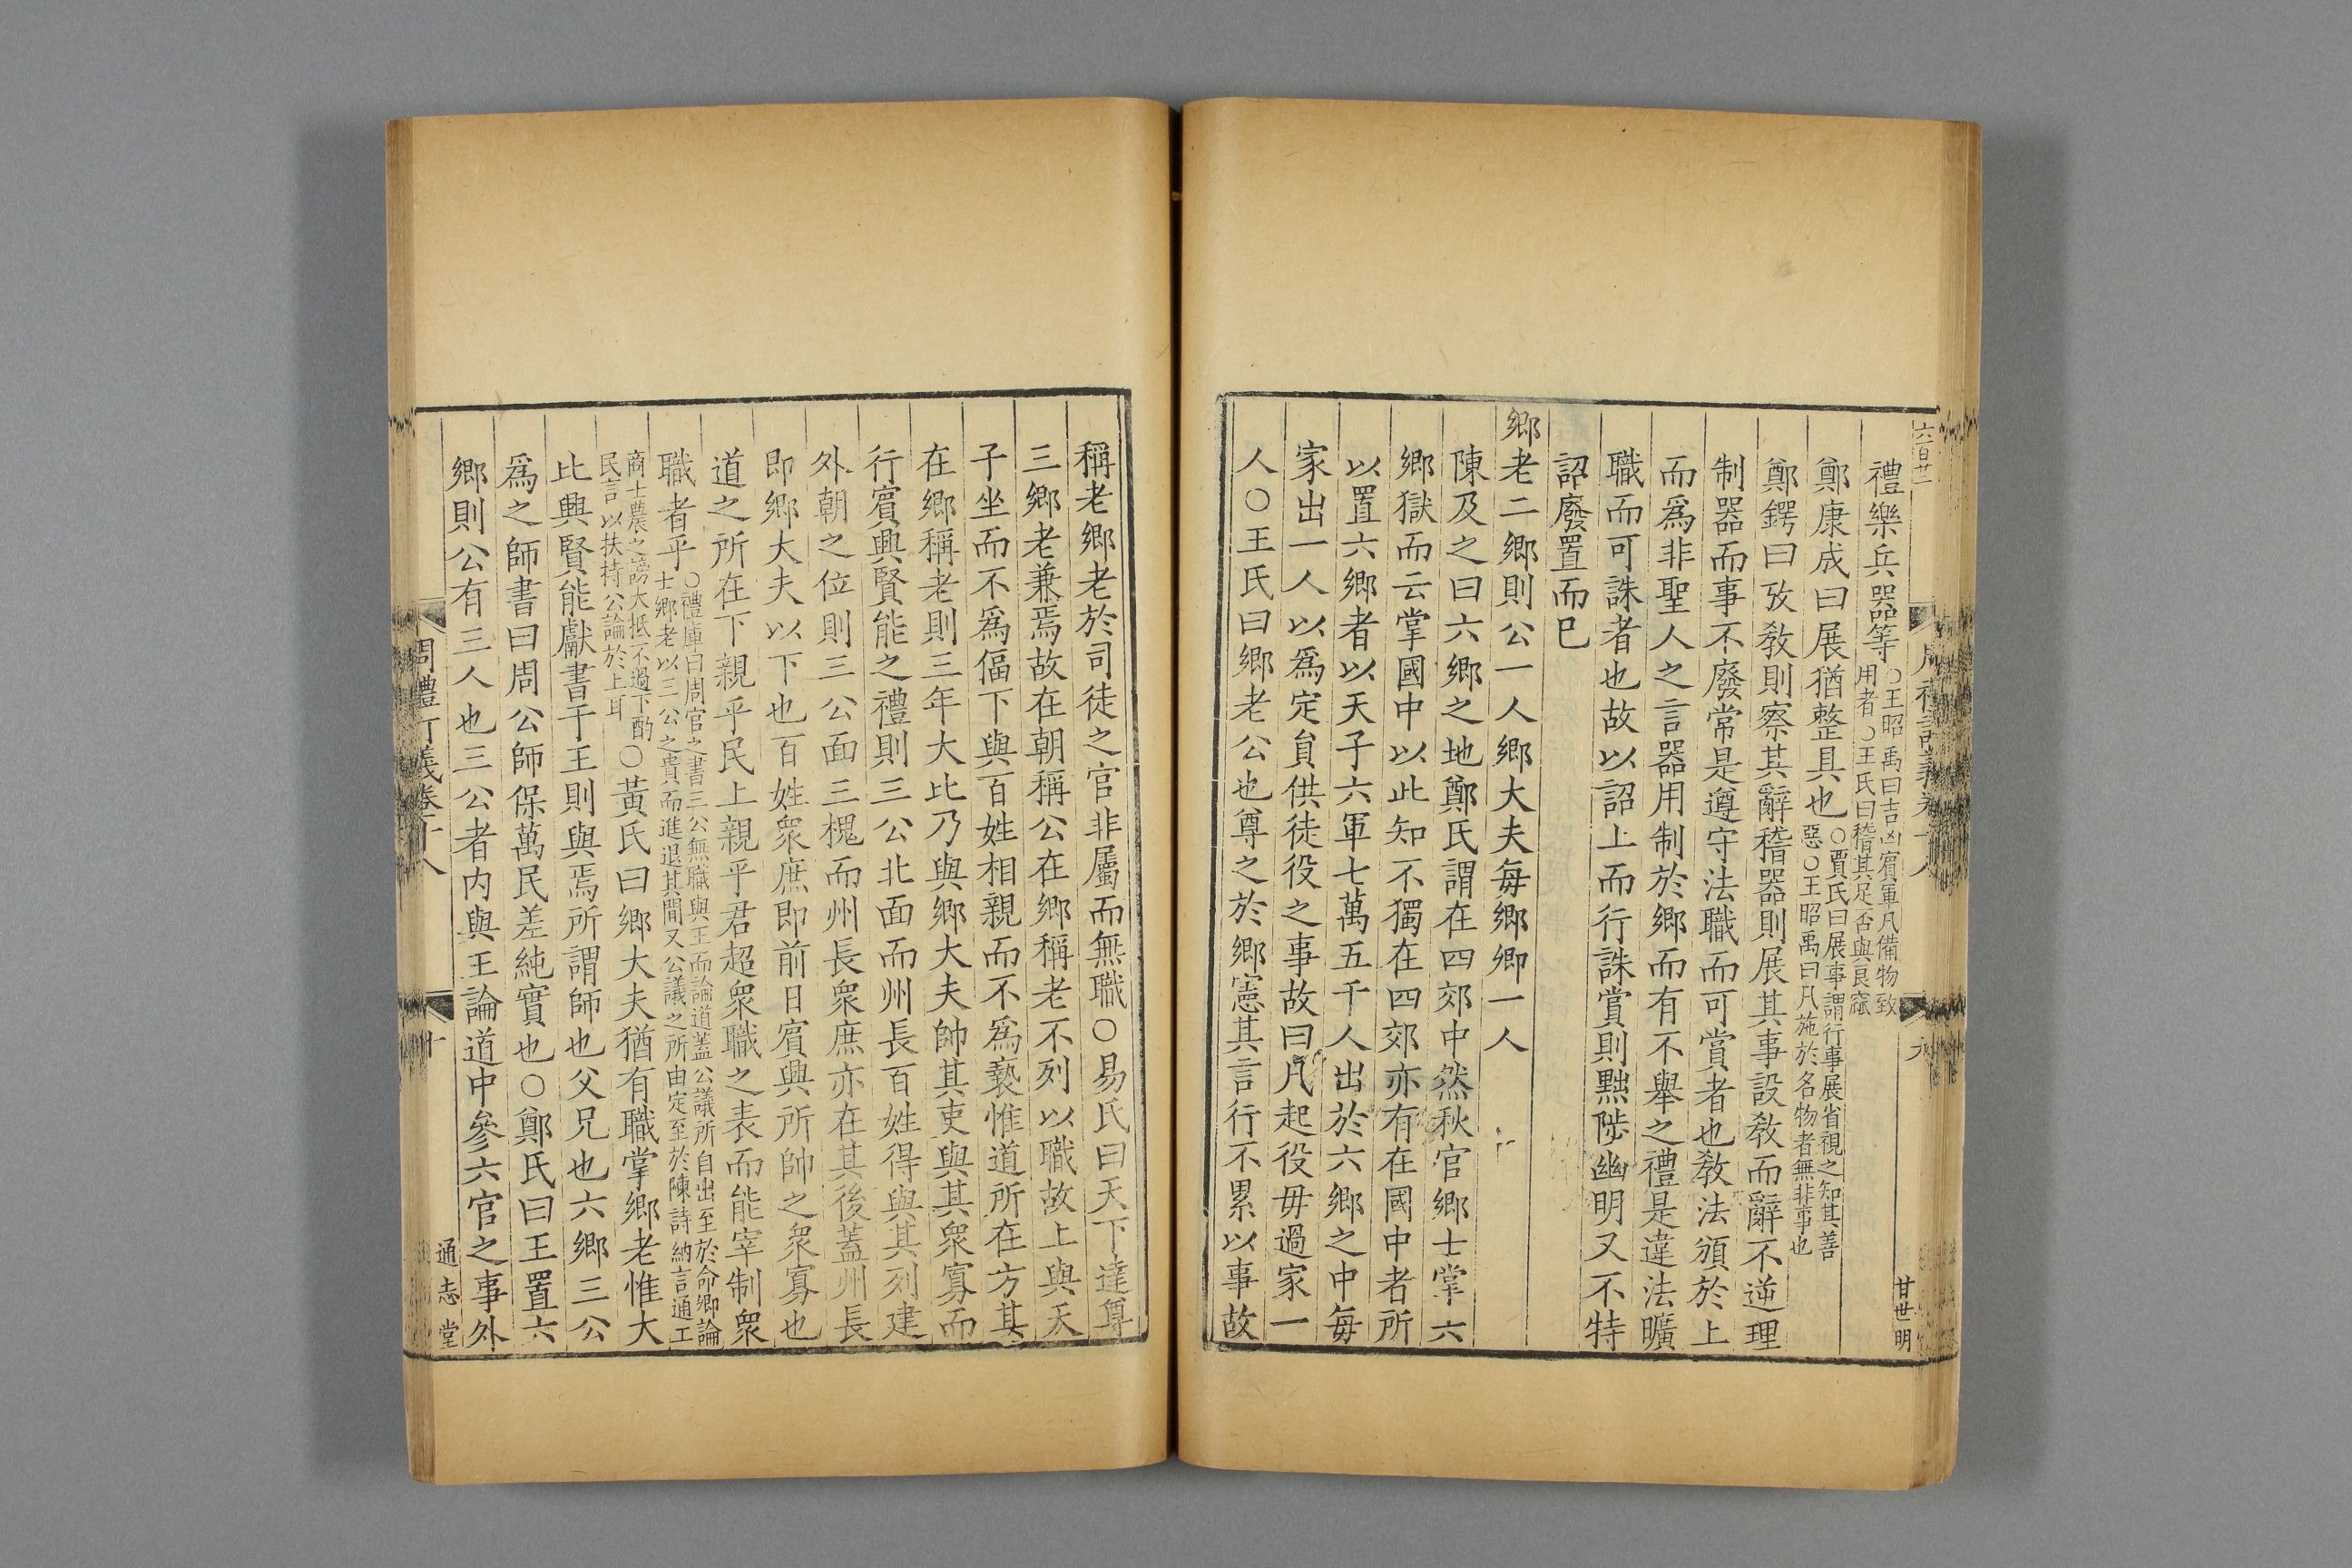 六百廿二
禮樂兵器等○王昭禹曰吉凶賓軍凡備物致
用者○王氏曰稽其足否與良窳
鄭康成曰展猶整具也○賈氏曰展事謂行事展省視之知其善
惡○王昭禹曰凡施於名物者無非事也
鄭鍔曰攷教則察其辭稽器則展其事設教而辭不逆理
制器而事不廢常是遵守法職而可賞者也教法頒於上
而爲非聖人之言器用制於鄉而有不舉之禮是違法曠
職而可誅者也故以詔上而行誅賞則黜陟幽明又不特
詔廢置而已
鄉老二鄉則公一人鄉大夫每鄉卿一人
陳及之曰六鄉之地鄭氏謂在四郊中然秋官鄉士掌六
鄉獄而云掌國中以此知不獨在四郊亦有在國中者所
以置六鄉者以天子六軍七萬五千人出於六鄉之中每
家出一人以爲定員供徒役之事故曰凡起役毋過家一
人○王氏曰鄉老公也尊之於鄉憲其言行不累以事故
甘世明
稱老鄉老於司徒之官非屬而無職○易氏曰天下達尊
三鄉老兼焉故在朝稱公在鄉稱老不列以職故上與天
子坐而不爲偪下與百姓相親而不爲褻惟道所在方其
在鄉稱老則三年大比乃與鄉大夫帥其吏與其衆寡而
行賓興賢能之禮則三公北面而州長百姓得與其列建
外朝之位則三公面三槐而州長衆庶亦在其後蓋州長
即鄉大夫以下也百姓衆庶即前日賓興所帥之衆寡也
道之所在下親乎民上親乎君超衆職之表而能宰制衆
職者乎○禮庫曰周官之書三公無職與王而論道蓋公議所自出至於命鄉論
士鄉老以三公之貴而進退其間又公議之所由定至於陳詩納言通工
商士農之謗大抵不過下酌
民言以扶持公論於上耳○黃氏曰鄉大夫猶有職掌鄉老惟大
比興賢能獻書于王則與焉所謂師也父兄也六鄉三公
爲之師書曰周公師保萬民差純實也○鄭氏曰王置六
鄉則公有三人也三公者内與王論道中參六官之事外
周禮訂義卷十八
十
通志堂